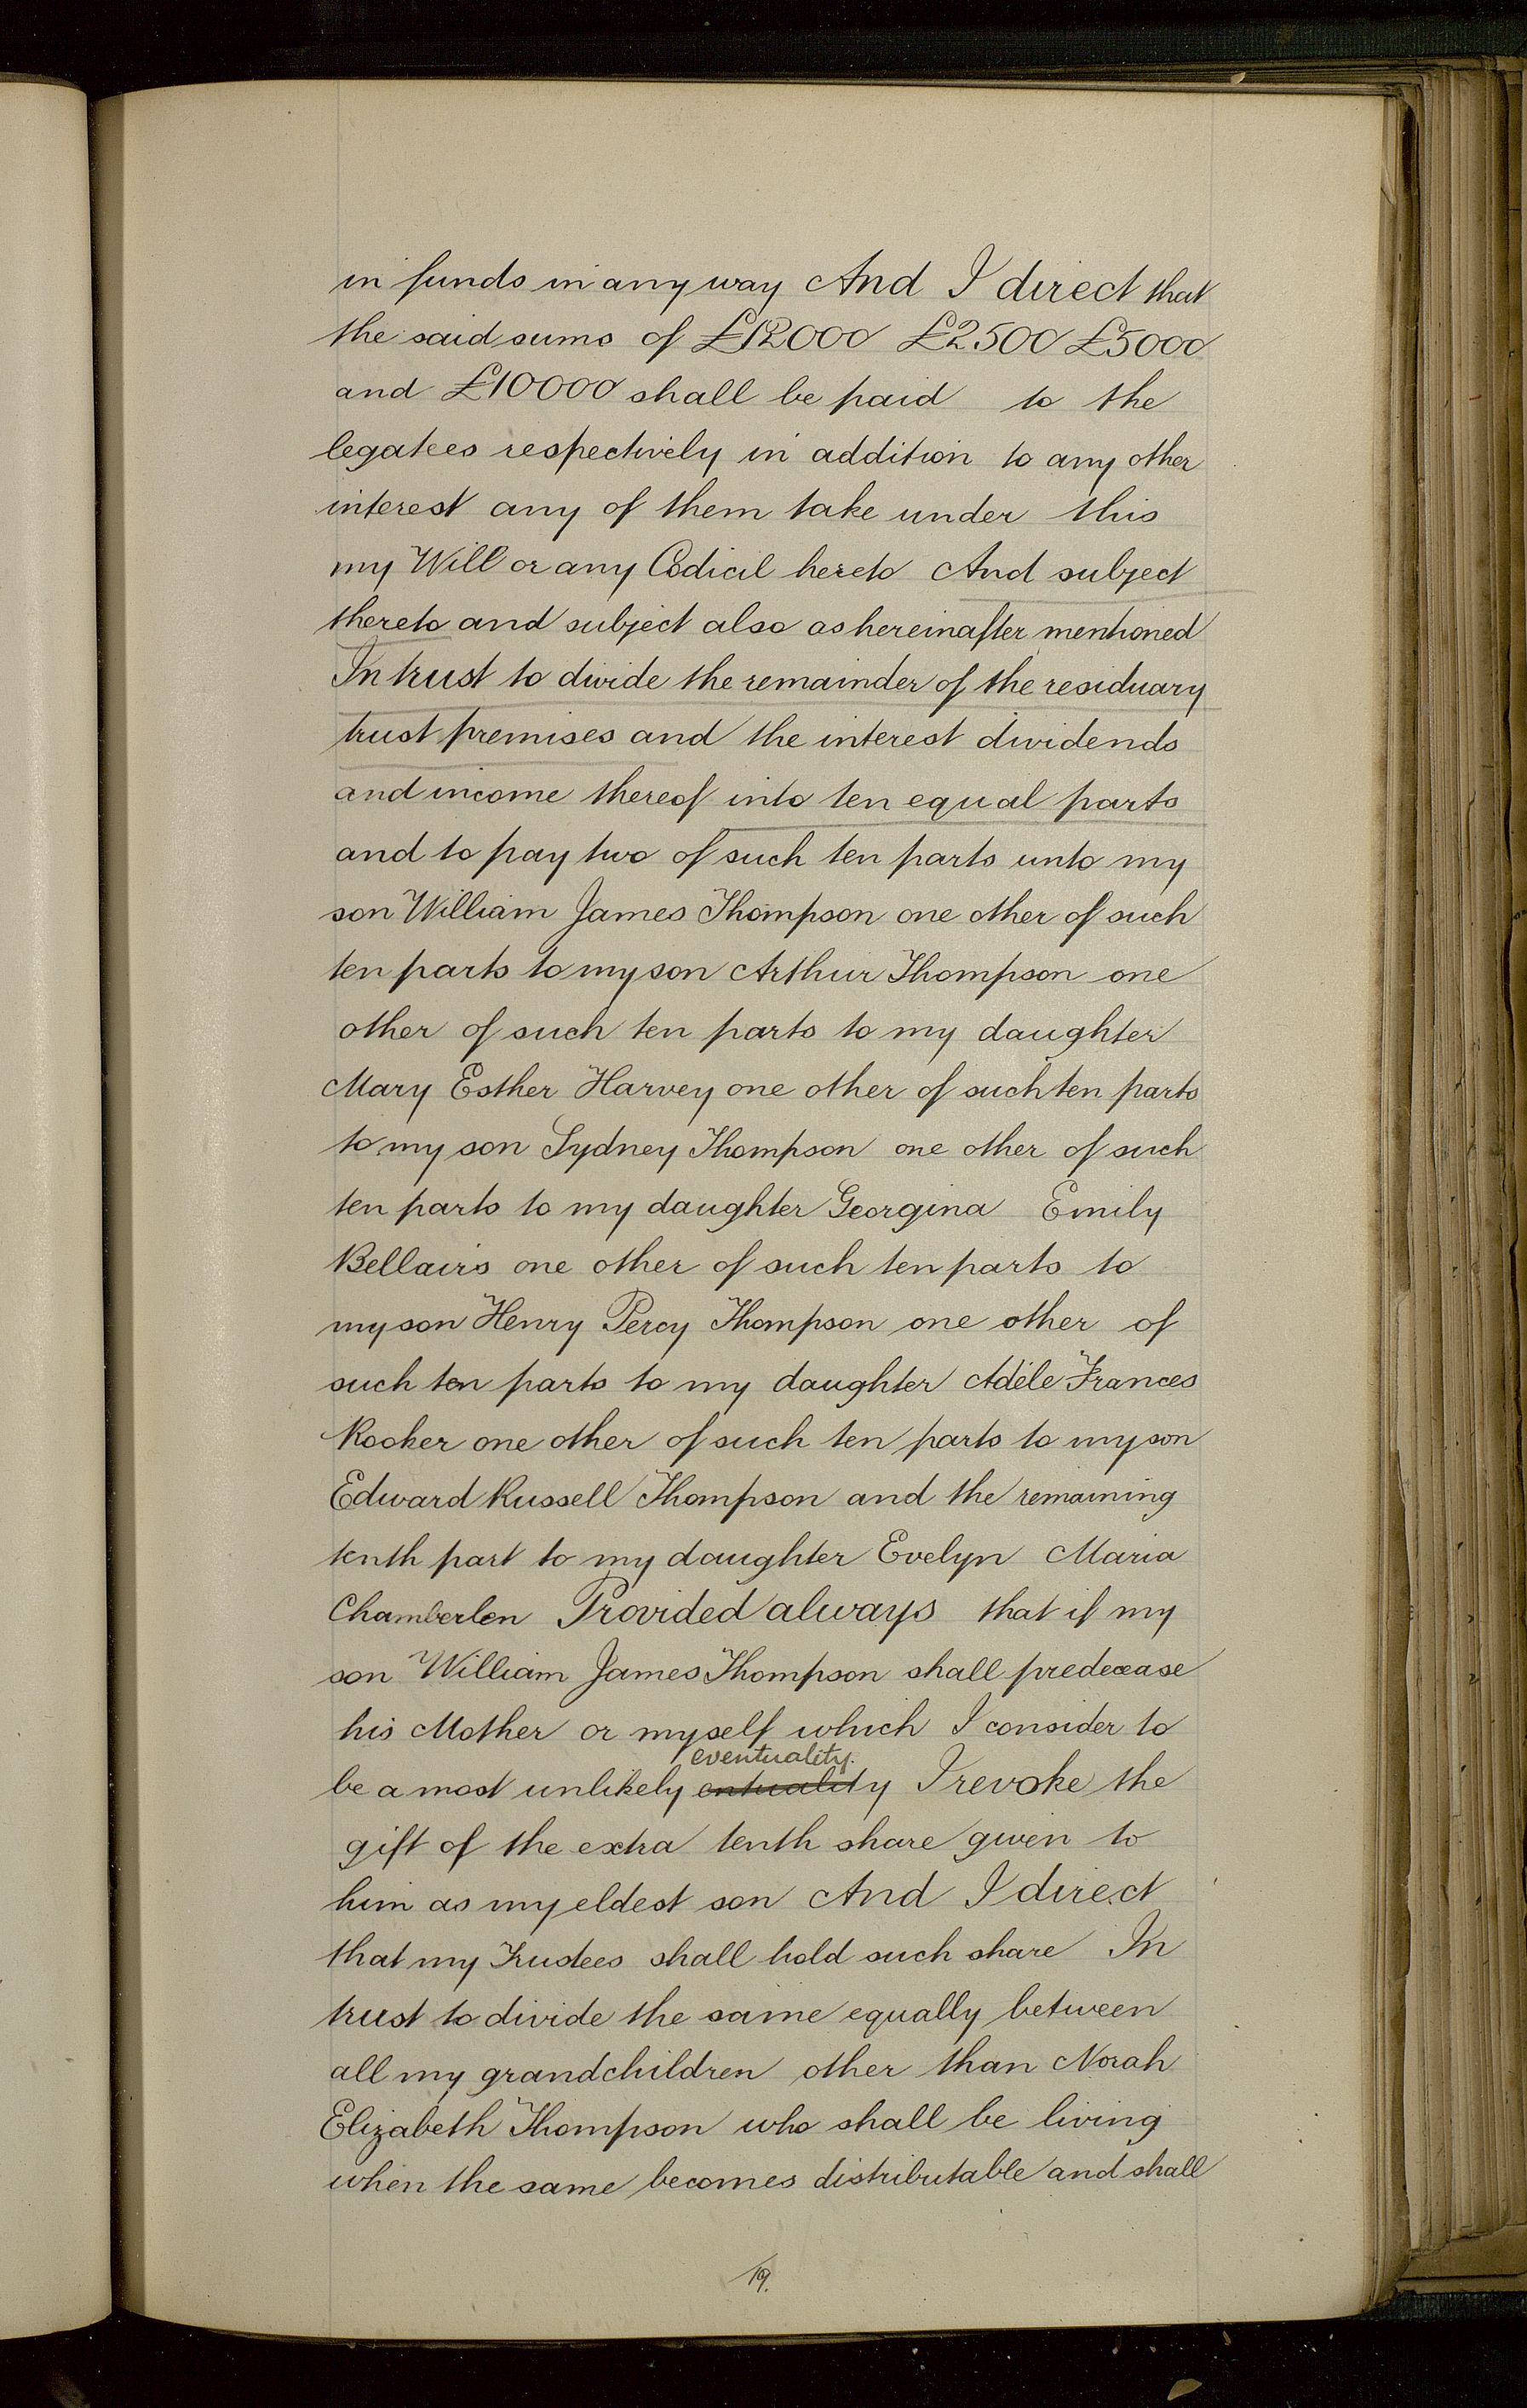 in funds in any way And I direct that
the said sums of £12000 £2500 £5000
and £10000 shall be paid to the
legatees respectively in addition to any other
interest any of them take under this
my Will or any Codicil hereto And subject
thereto and subject also as hereinafter mentioned
In trust to divide the remainder of the residuary
trust premises and the interest dividends
and income thereof into ten equal parts
and to pay two of such ten parts unto my
son William James Thompson one other of such
ten parts to my son Arthur Thompson one
other of such ten parts to my daughter
Mary Esther Harvey one other of such ten parts
to my son Sydney Thompson one other of such
ten parts to my daughter Georgina Emily
Bellairs one other of such ten parts to
my son Henry Percy Thompson one other of
such ten parts to my daughter Adéle Frances
Rooker one other of such ten parts to my son
Edward Russell Thompson and the remaining
tenth part to my daughter Evelyn Maria
Chamberlen Provided always that if my
son William James Thompson shall predecease
his Mother or myself which I consider to
eventuality.
be a most unlikely entuality I revoke the
gift of the extra tenth share given to
him as my eldest son And I direct
that my Trustees shall hold such share In
trust to divide the same equally between
all my grandchildren other than Norah
Elizabeth Thompson who shall be living
when the same becomes distributable and shall
19.